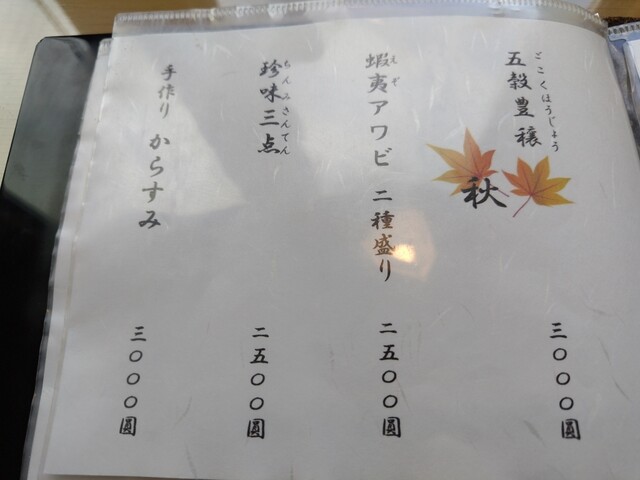 五穀豊穣
ごこくほうじょう
秋
三〇〇〇圓
蝦夷アワビ 二種盛り
えぞ
二五〇〇圓
珍味三点
ちんみさんてん
二五〇〇圓
手作り からすみ
三〇〇〇圓